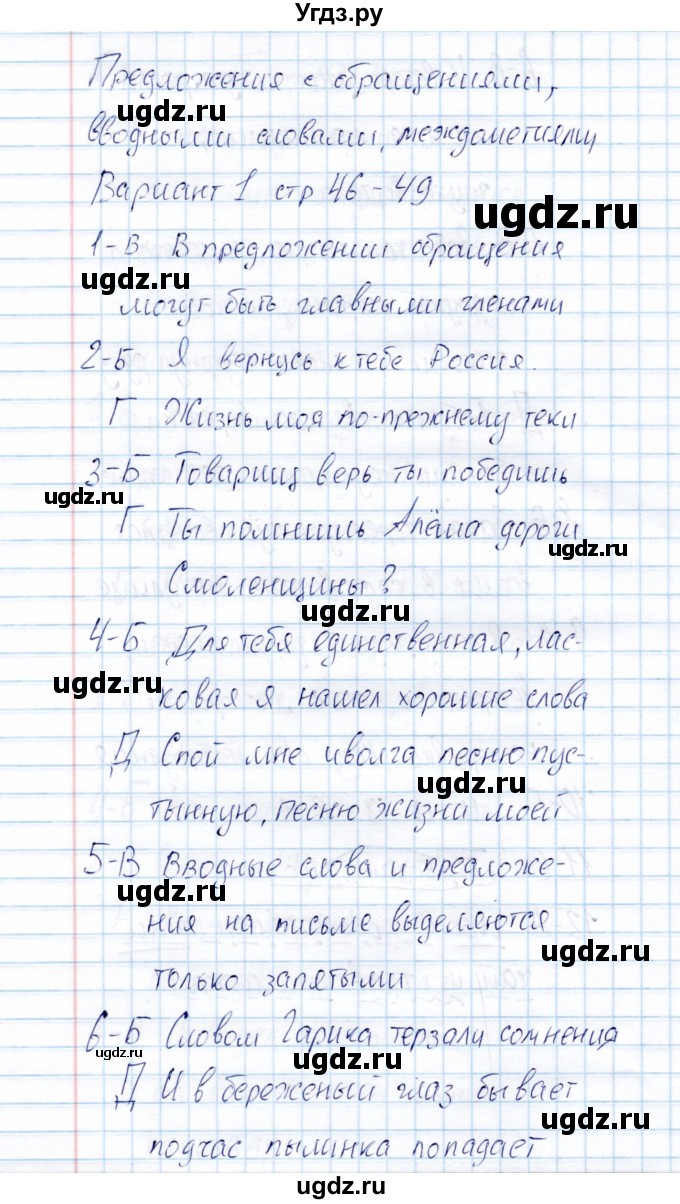 Угдз.ру
Предложения с обращениями,
ugdz.ru
вводными словами, междометиями
Вариант 1 стр 46-49
ugdz.ru
1-В В предложении обращения
ugdz.ru
могут быть главными членами
2-Б Я вернусь к тебе Россия.
Г Жизнь моя по-прежнему теки
3-Б Товарищ верь ты победишь
ugdz.ru
Г Ты помнишь Алёша дороги
ugdz.ru
Смоленщины?
ugdz.ru
4-Б Для тебя единственная, лас-
ugdz.ru
ковая я нашел хорошие слова
Д Спой мне иволга песню пус-
ugdz.ru
тынную, песню жизни моей
5-В Вводные слова и предложе-
ugdz.ru
ния на письме выделяются
ugdz.ru
только запятыми
6-Б Словом Гарика терзали сомнения
ugdz.ru
ugdz.ru
Д И в береженый глаз бывает
ugdz.ru
подчас пылинка попадает
ugdz.ru